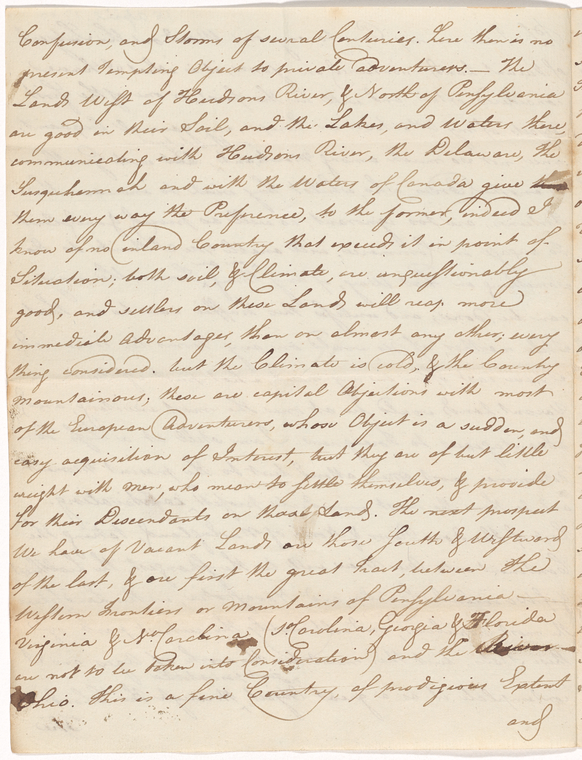 Confusion, and Storms of several Centuries. here then is no
present tempting Object to private adventurers. — The
Lands West of Hudsons River, & North of Pensylvania
are good in their Soil, and the Lakes, and Waters there,
communicating with Hudsons River, the Delaware, the
Susquehannah and with the Waters of Canada give
them every way the Preference, to the former, indeed I
know of no inland Country that exceeds it in point of
Situation; both soil, & Climate, are unquestionably
good, and settlers on these Lands will reap more
immediate advantages, than on almost any other; every
thing considered. but the Climate is cold, & the Country
mountainous; these are capital Objections with most
of the European Adventurers, whose Object is a sudden, and
easy acquisition of Interest, but they are of but little
weight with men, who mean to settle themselves, & provide
for their Descendants on these Lands. The next prospect
We have of Vacant Lands are those South & Westward
of the last, & are first the great Tract, between the
Western Frontiers or Mountains of Pensylvania —
Virginia & No Carolina (So Carolina, Georgia & Florida
are not to be taken into Consideration) and the River
Ohio. This is a fine Country, of prodigious Extent
and